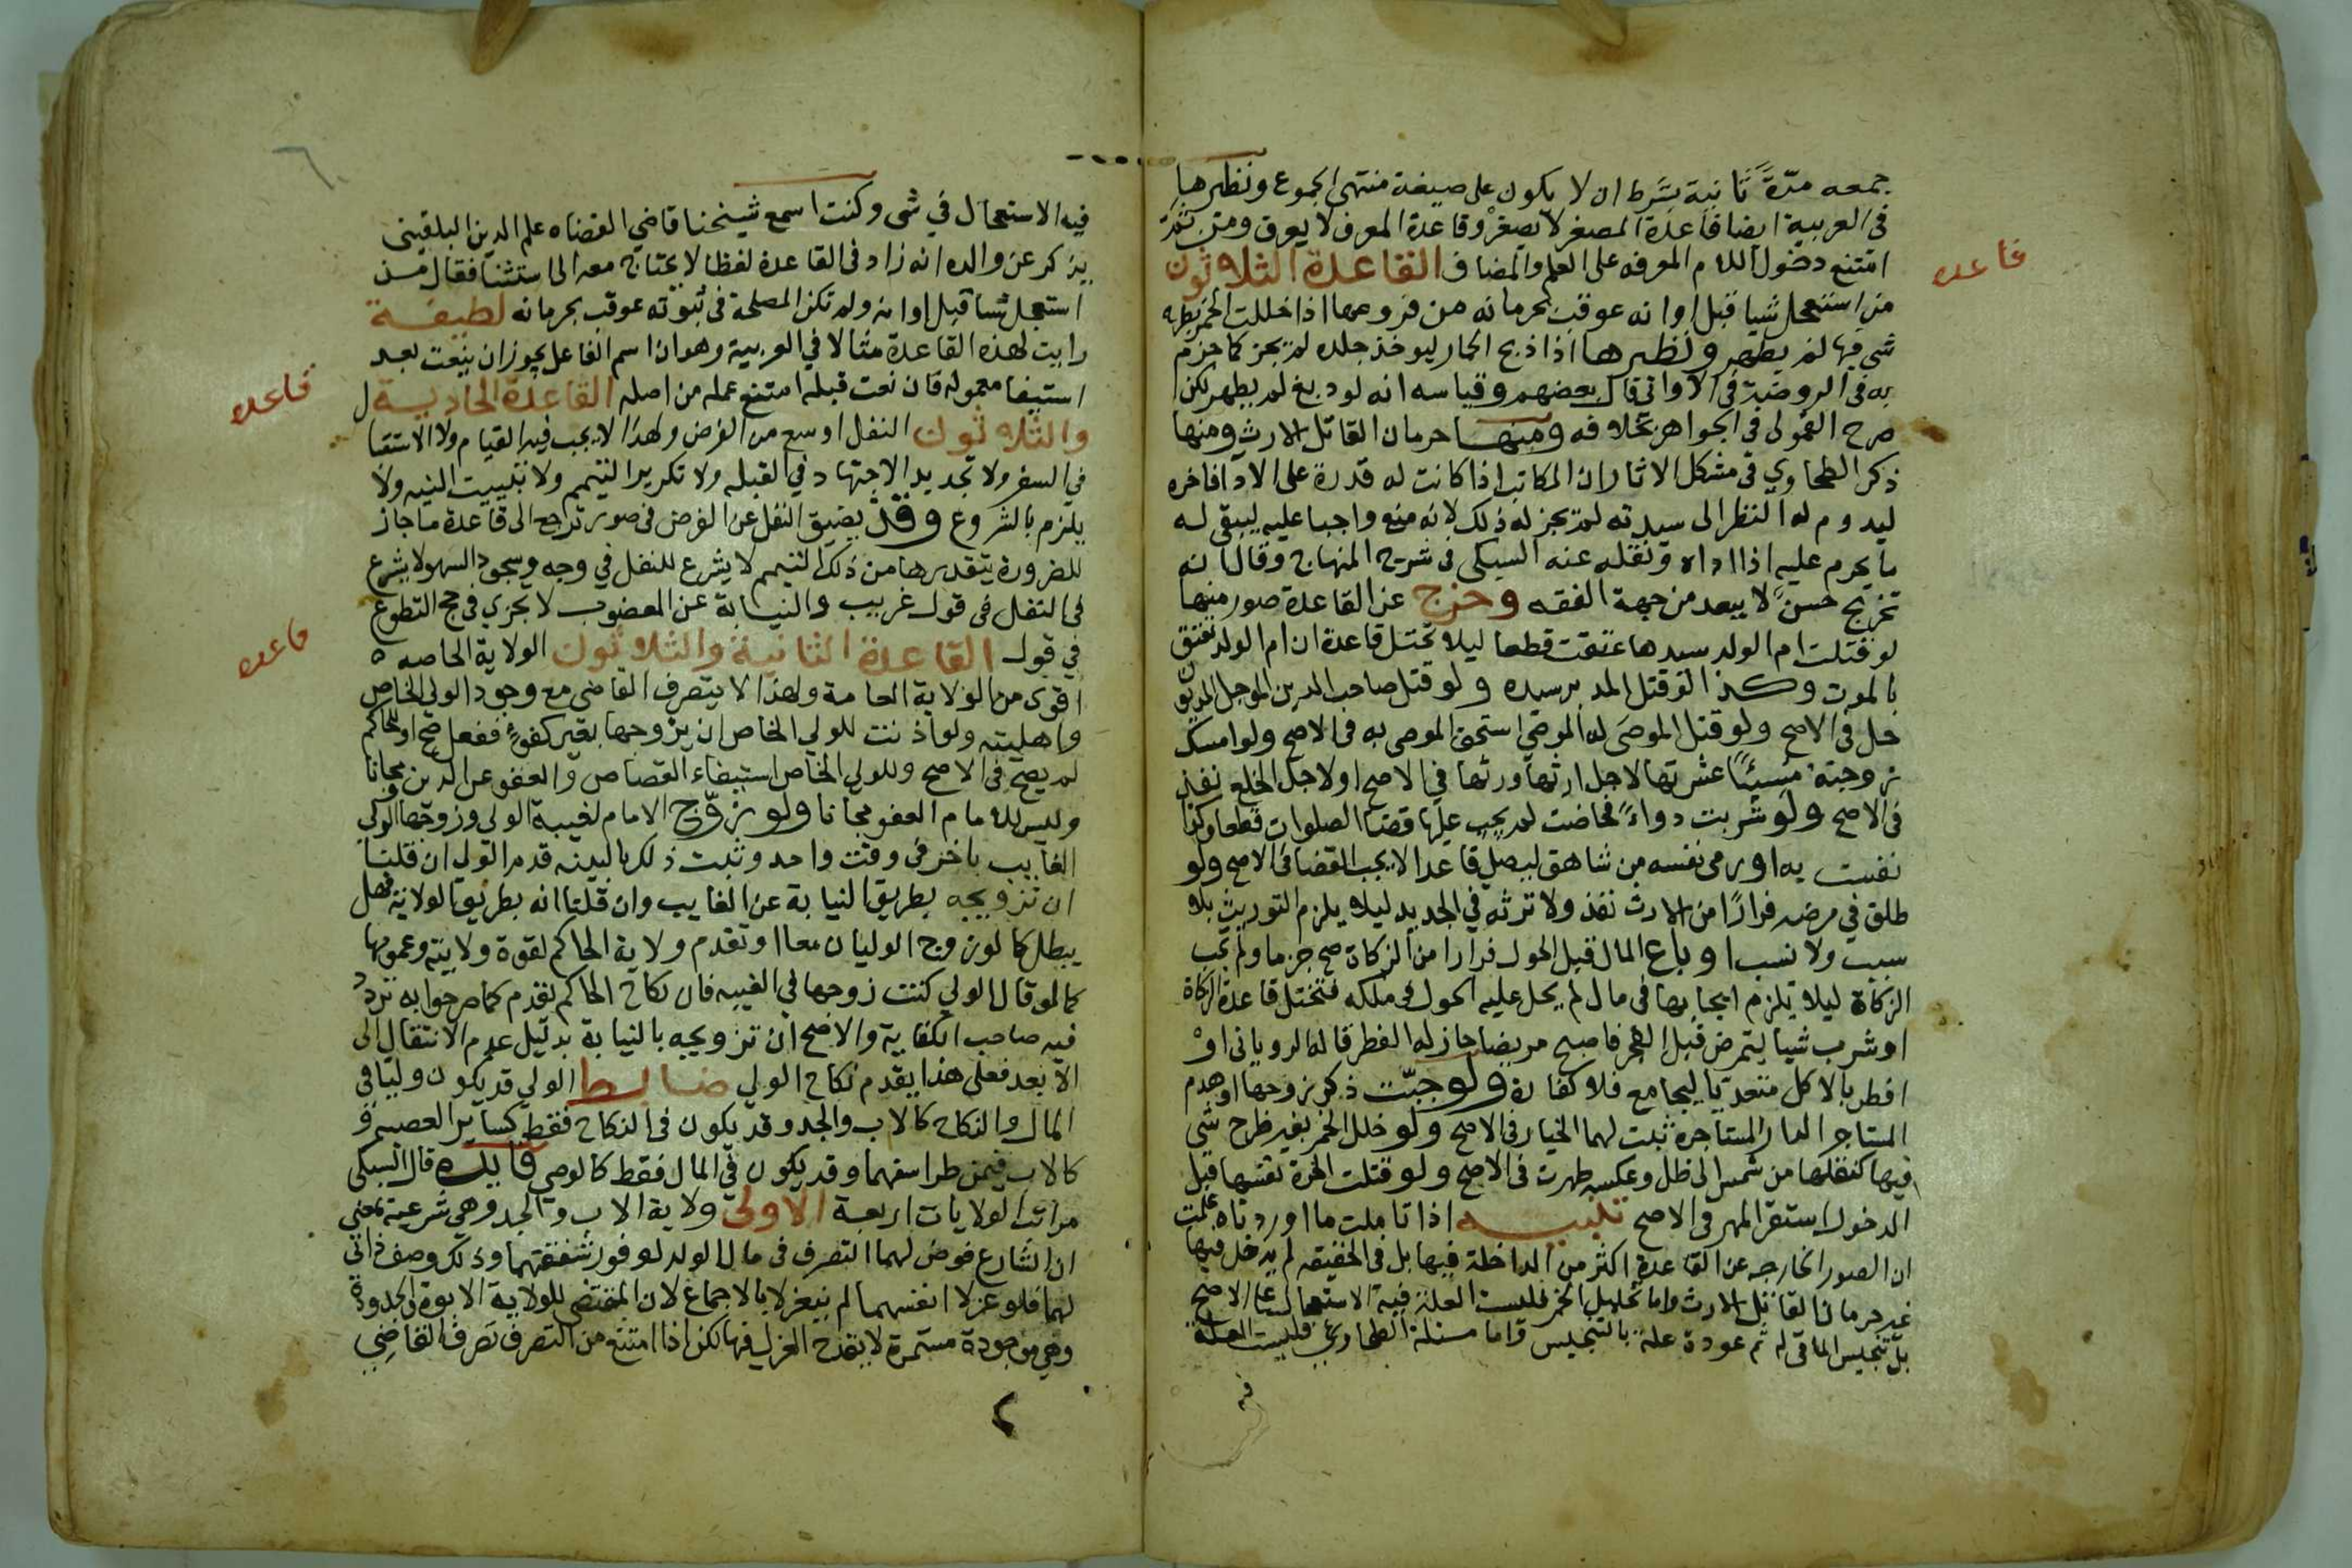 جمعه مرة ثانية بشرط ان لا يكون على صيغة منتهى الجموع ونظيرها
في العربية ايضا قاعدة المصغر لا يصغر وقاعدة المعرف لا يعرف ومن ثم
امتنع دخول اللام المعرفه على العلم والمضاف القاعدة الثلاثون
قاعده
من استعجل شيا قبل اوانه عوقب بحرمانه من فروعها اذا خللت الخمر بطرح
شي فيها لم يطهر ونظيرها اذا ذبح الحمار ليوخذ جلده لم يجز كما جزم
به في الروضة في الاواني قال بعضهم وقياسه انه لو دبغ لم يطهر لكن
صرح القمولي في الجواهر بخلافه ومنها حرمان القاتل الارث ومنها
ذكر الطحاوي في مشكل الاثار ان المكاتب اذا كانت له قدرة على الادا فاخره
ليدوم له النظر الى سيدته لم يجز له ذلك لانه منع واجبا عليه ليبقى له
ما يحرم عليه اذا اداه ونقله عنه السبكي في شرح المنهاج وقال انه
تخريج حسن لا يبعد من جهة الفقه وخرج عن القاعدة صور منها
لو قتلت ام الولد سيدها عتقت قطعا ليلا تختل قاعدة ان ام الولد تعتق
بالموت وكذا لو قتل المدبر سيده ولو قتل صاحب الدين الموجل المديون
حل في الاصح ولو قتل الموصى له الموصي استحق الموصى به في الاصح ولو امسك
زوجته مسيئا عشرتها لاجل ارثها ورثها في الاصح او لاجل الخلع نفذ
في الاصح ولو شربت دواء فحاضت لم يجب عليها قضا الصلوات قطعا وكذا لو
نفست به او رمى نفسه من شاهق ليصلي قاعدا لا يجب القضا في الاصح ولو
طلق في مرضه فرارا من الارث نفذ ولا ترثه في الجديد ليلا يلزم التوريث بلا
سبب ولا نسب او باع المال قبل الحول فرارا من الزكاة صح جزما ولم تجب
الزكاة ليلا يلزم ايجابها في مال لم يحل عليه الحول في ملكه فتختل قاعدة الزكاة
او شرب شيا ليتمرض قبل الفجر فاصبح مريضا جاز له الفطر قاله الروياني او
افطر بالاكل متعديا ليجامع فلا كفارة ولو جبت ذكر زوجها او هدم
المستاجر الدار المستاجرة ثبت لهما الخيار في الاصح ولو خلل الخمر بغير طرح شي
فيها كنقلها من شمس الى ظل وعكسه طهرت في الاصح ولو قتلت الحرة نفسها قبل
الدخول استقر المهر في الاصح تنبيه اذا تاملت ما اوردناه علمت
ان الصور الخارجه عن القاعدة اكثر من الداخلة فيها بل في الحقيقه لم يدخل فيها
غير حرمان القاتل الارث واما تخليل الخمر فليست العلة فيه الاستعجال على الاصح
بل تنجيس الملاقي له ثم عوده عليه بالتنجيس واما مسئلة الطحاوي فليست العلة
فيه
فيه الاستعجال في شي وكنت اسمع شيخنا قاضي القضاه علم الدين البلقيني
يذكر عن والده انه زاد في القاعدة لفظا لا يحتاج معه الى استثنا فقال من
استعجل شيا قبل اوانه ولم تكن المصلحة في ثبوته عوقب بحرمانه لطيفة
رايت لهذه القاعدة مثالا في العربية وهو ان اسم الفاعل يجوز ان ينعت بعد
استيفا معموله فان نعت قبله امتنع عمله من اصله القاعدة الحادية
قاعده
والثلاثون النفل اوسع من الفرض ولهذا لا يجب فيه القيام ولا الاستقبال
في السفر ولا تجديد الاجتهاد في القبله ولا تكرير التيمم ولا تبييت النيه ولا
يلزم بالشروع وقد يضيق النفل عن الفرض في صور ترجع الى قاعدة ما جاز
للضرورة يتقدر بقدرها من ذلك التيمم لا يشرع للنفل في وجه وسجود السهو لا يشرع
في النفل في قول غريب والنيابة عن المعضوب لا يجزي في حج التطوع
في قول القاعدة الثانية والثلاثون الولاية الخاصه
قاعده
اقوى من الولاية العامة ولهذا لا يتصرف القاضي مع وجود الولي الخاص
واهليته ولو اذنت للولي الخاص ان يزوجها بغير كفوء ففعل صح او للحاكم
لم يصح في الاصح وللولي الخاص استيفاء القصاص والعفو عن الدين مجانا
وليس للامام العفو مجانا ولو زوج الامام لغيبة الولي وزوجها الولي
الغايب باخر في وقت واحد وثبت ذلك بالبينه قدم الولي ان قلنا
ان تزويجه بطريق النيابة عن الغايب وان قلنا انه بطريق الولاية فهل
يبطل كما لو زوج الوليان معا او تقدم ولاية الحاكم لقوة ولايته وعمومها
كما لو قال الولي كنت زوجها في الغيبه فان نكاح الحاكم يقدم كما صرحوا به تردد
فيه صاحب الكفاية والاصح ان تزويجه بالنيابة بدليل عدم الانتقال الى
الابعد فعلى هذا يقدم نكاح الولي ضابط الولي قد يكون وليا في
المال والنكاح كالاب والجد وقد يكون في النكاح فقط كساير العصبه و
كالاب فيمن طرا سفهها وقد يكون في المال فقط كالوصي فايدة قال السبكي
مراتب الولايات اربعة الاولى ولاية الاب والجد وهي شرعية بمعنى
ان الشارع فوض لهما التصرف في مال الولد لوفور شفقتهما وذلك وصف ذاتي
لهما فلو عزلا انفسهما لم ينعزلا بالاجماع لان المقتضي للولاية الابوة والجدودة
وهي موجودة مستمرة لا يقدح العزل فيها لكن اذا امتنع من التصرف تصرف القاضي